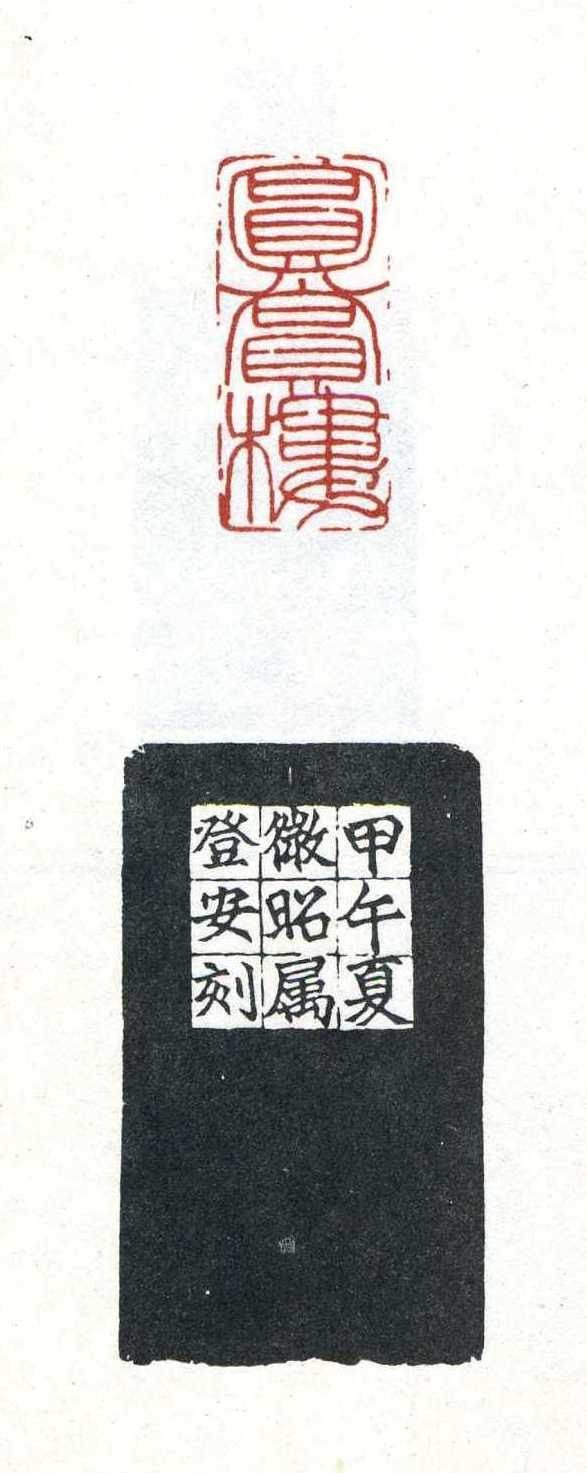 樓
甲午夏
徽昭属
登安刻